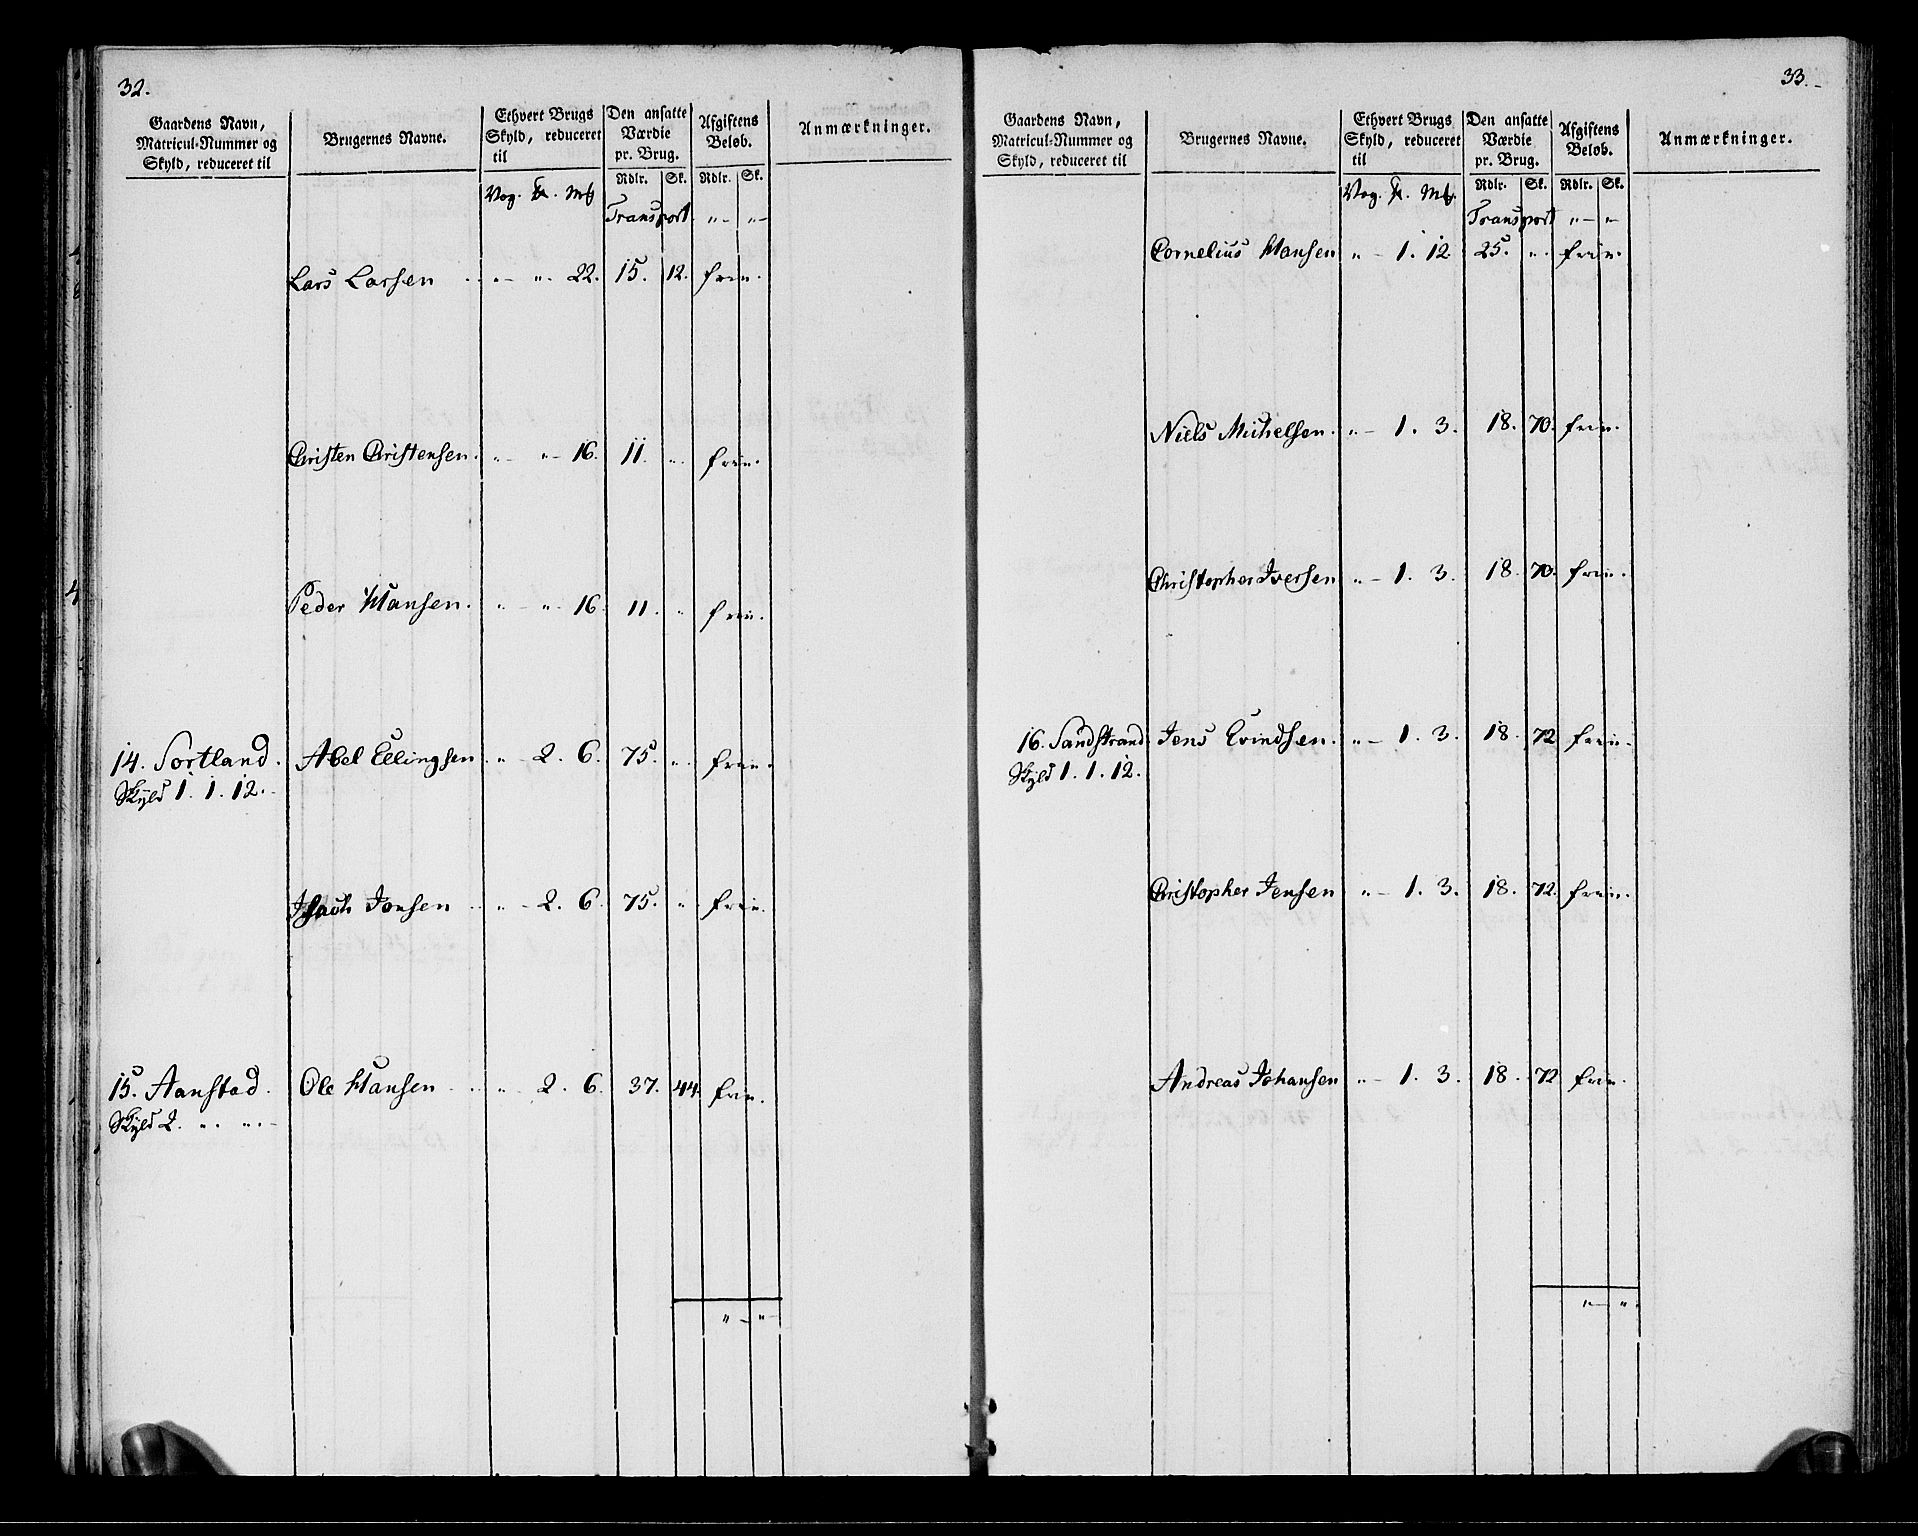 32.
Gaardens Navn, Matricul-Nummer og Skyld, reduceret til
Brugernes Navne.
Ethvert Brugs Skyld, reduceret til
Den ansatte Værdie pr. Brug.
Afgiftens Beløb.
Anmærkninger.
Vog. Mk
Rdlr. Sk. Rdlr. Sk.
Transport „ — „ —
Lars Larsen „ — „ 22. 15. 12. frie.
Christen Christensen. „ — „ — 16. 11. „ frie.
Peder Hansen. „ „ 16. 11. „ frie.
14. Sortland. Abel Ellingsen „ — 2. 6. 75. „ frie.
Skyld 1. 1. 12.
Isach Jonsen „ — 2. 6. 75. „ frie.
15. Aanstad. Ole Hansen „ 2. 6. 37. 44. frie.
Skyld 2. „ „
„ — „
33.
Gaardens Navn, Matricul-Nummer og Skyld, reduceret til
Brugernes Navne.
Ethvert Brugs Skyld, reduceret til
Den ansatte Værdie pr. Brug.
Afgiftens Beløb.
Anmærkninger.
Vog. Mk
Rdlr. Sk. Rdlr. Sk.
Transport „ — „
Cornelius Hansen „ — 1. 12. 25. „ frie.
Niels Michelsen. „ — 1. 3. 18. 70. frie.
Christopher Iversen „ — 1. 3. 18. 70. frie.
16. Sandstrand Jens Evindsen. „ — 1. 3. 18. 72 frie.
Skyld 1. 1. 12.
Christopher Jensen „ — 1. 3. 18. 72. frie.
Andreas Johansen „ — 1. 3. 18. 72 frie.
„ — „